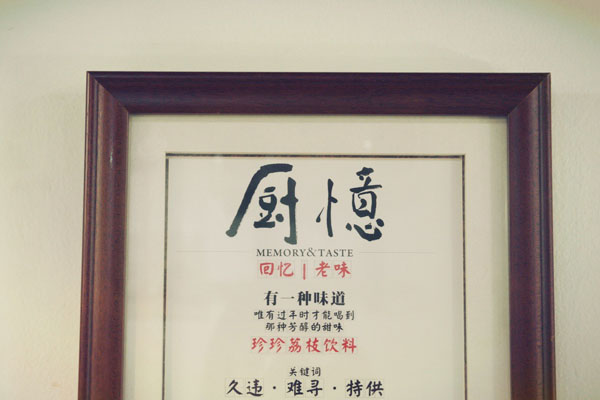 厨憶
MEMORY&TASTE
回忆 | 老味
有一种味道
唯有过年时才能喝到
那种芳醇的甜味
珍珍荔枝饮料
关键词
久违·难寻·特供